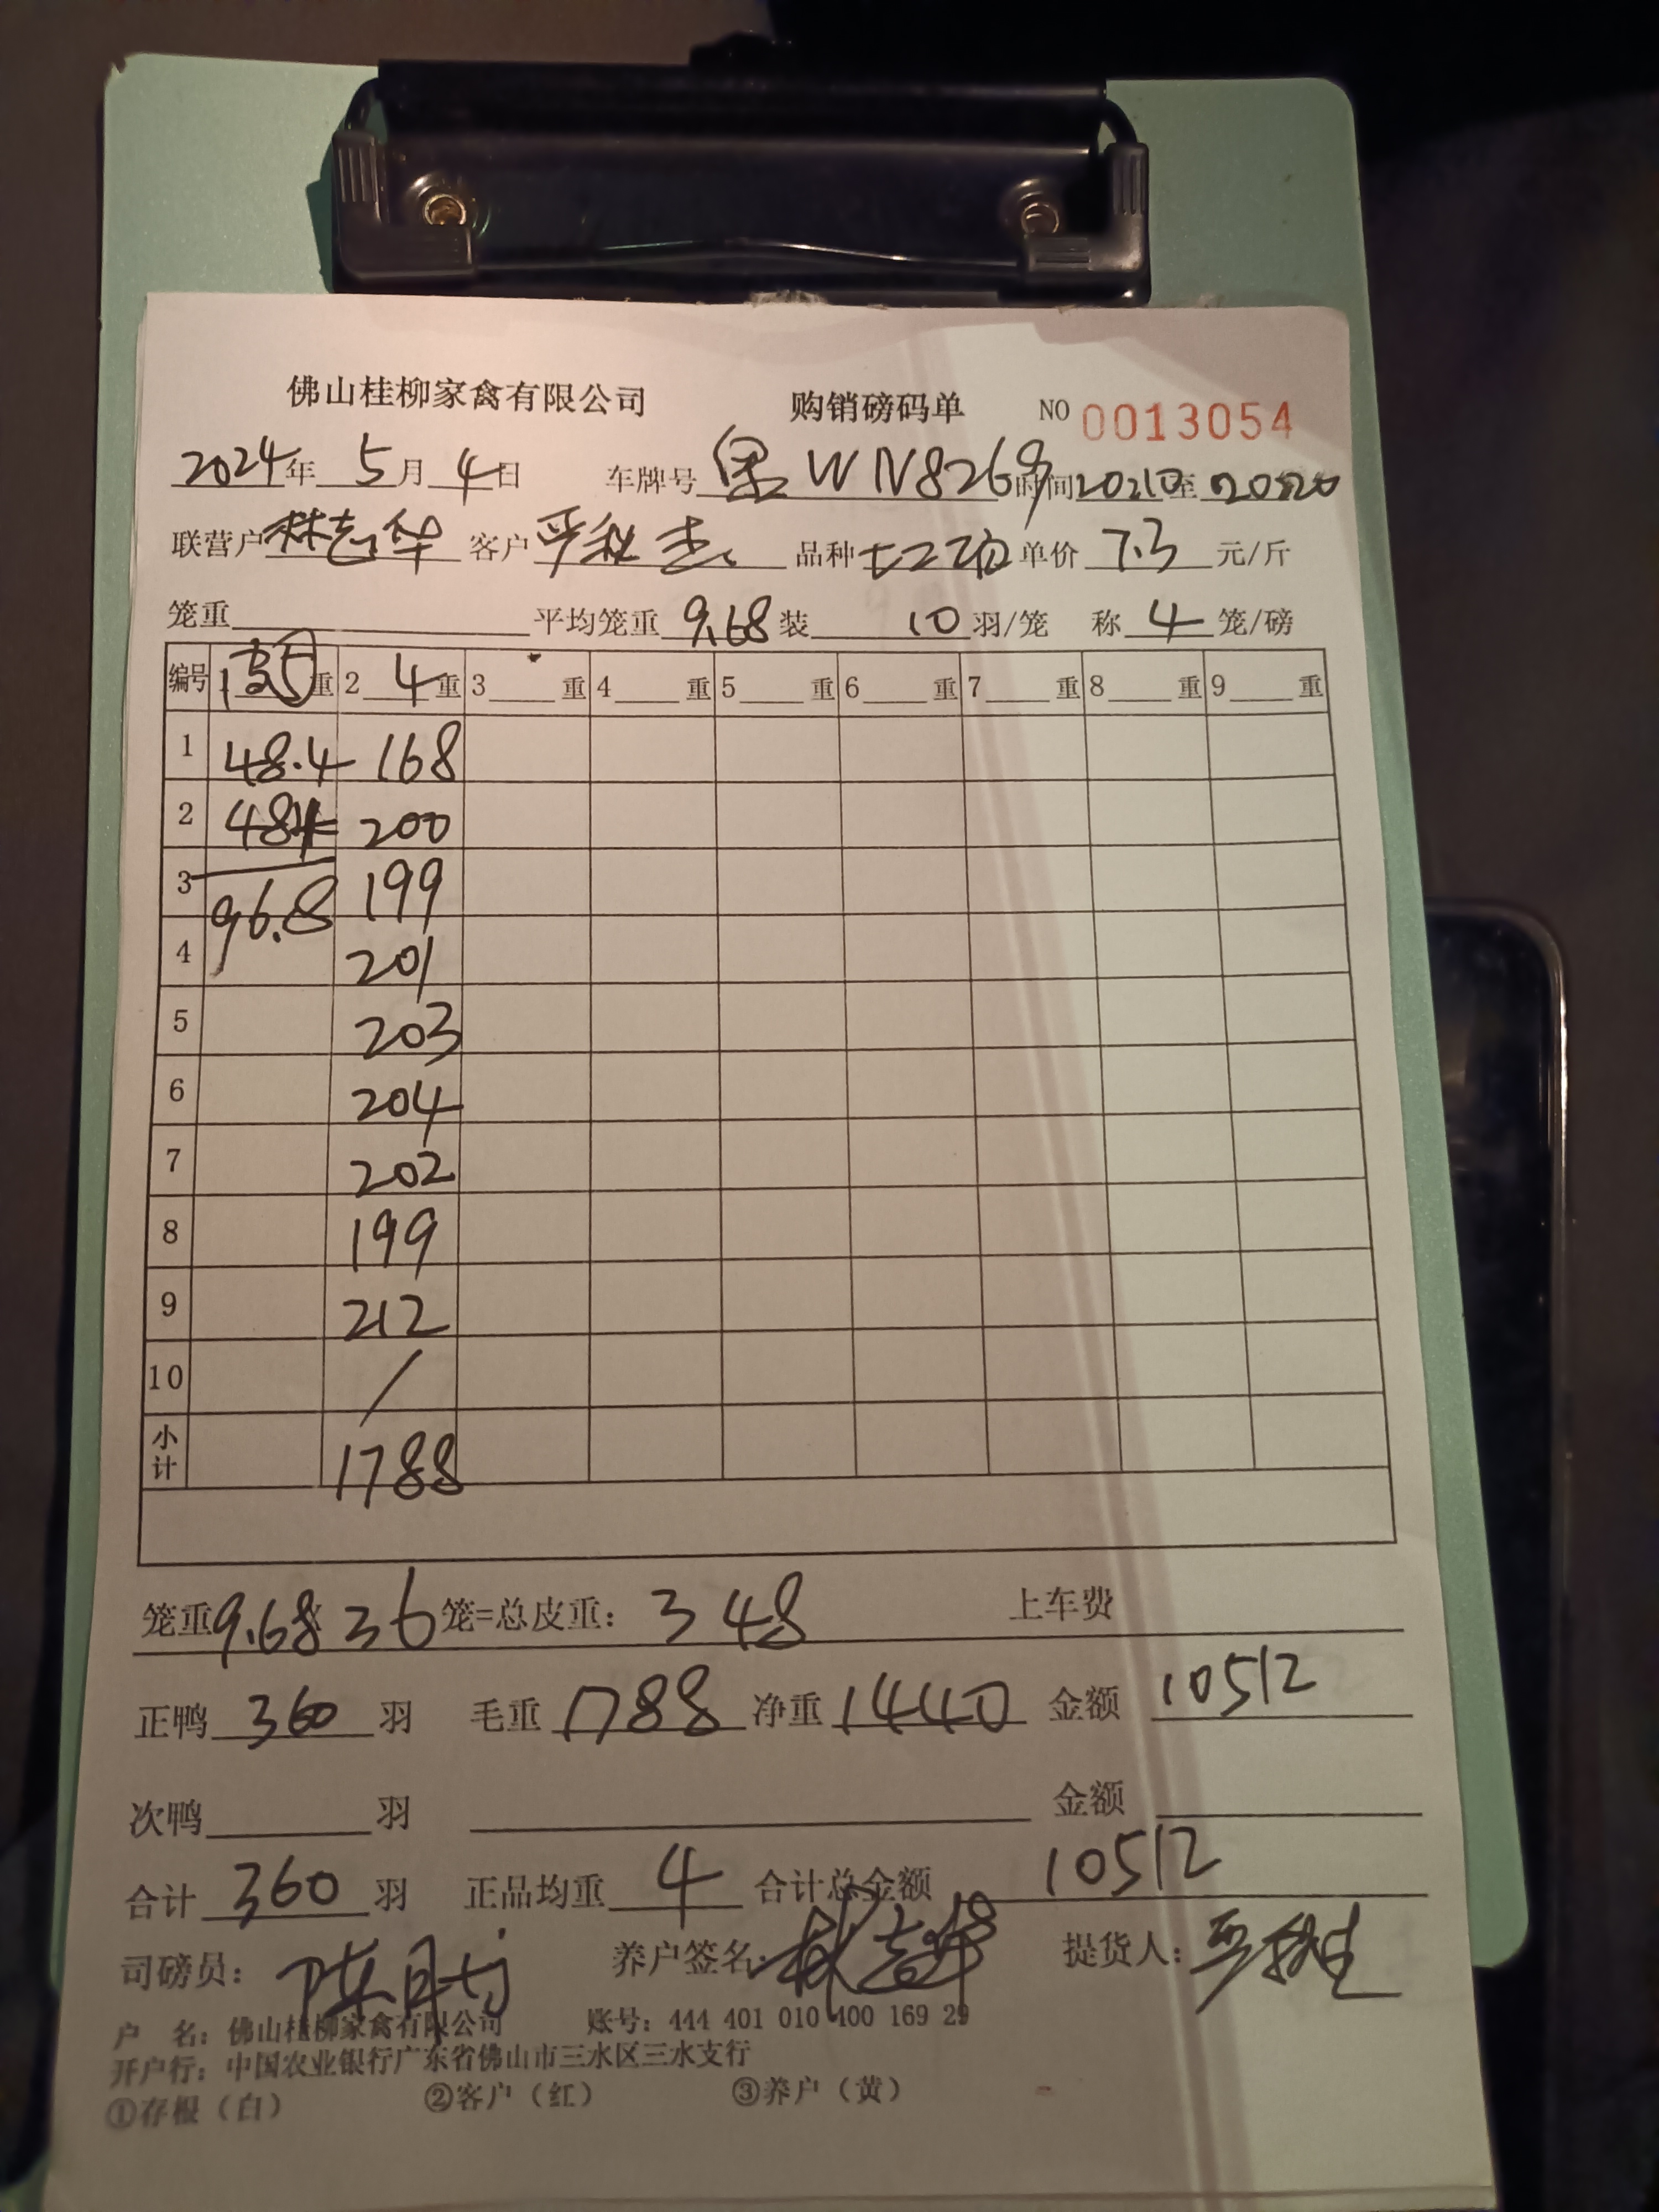 佛山桂柳家禽有限公司 购销磅码单 NO 0013054
2024年 5月 4日 车牌号 粤WN8268 时间 至
联营户 林志华 客户 严秋杰 品种 单价 7.3 元/斤
笼重 平均笼重 9.68 装 10 羽/笼 称 4 笼/磅
编号 1 皮5 重 2 4 重 3 重 4 重 5 重 6 重 7 重 8 重 9 重
1 48.4 168
2 48.4 200
3 96.8 199
4 201
5 203
6 204
7 202
8 199
9 212
10 /
小计 1788
笼重 9.68 36 笼=总皮重: 348 上车费
正鸭 360 羽 毛重 1788 净重 1440 金额 10512
次鸭 羽 金额
合计 360 羽 正品均重 4 合计总金额 10512
司磅员: 养户签名: 林志华 提货人:
户 名: 佛山桂柳家禽有限公司 账号: 444 401 010 400 169 29
开户行: 中国农业银行广东省佛山市三水区三水支行
①存根(白) ②客户(红) ③养户(黄)